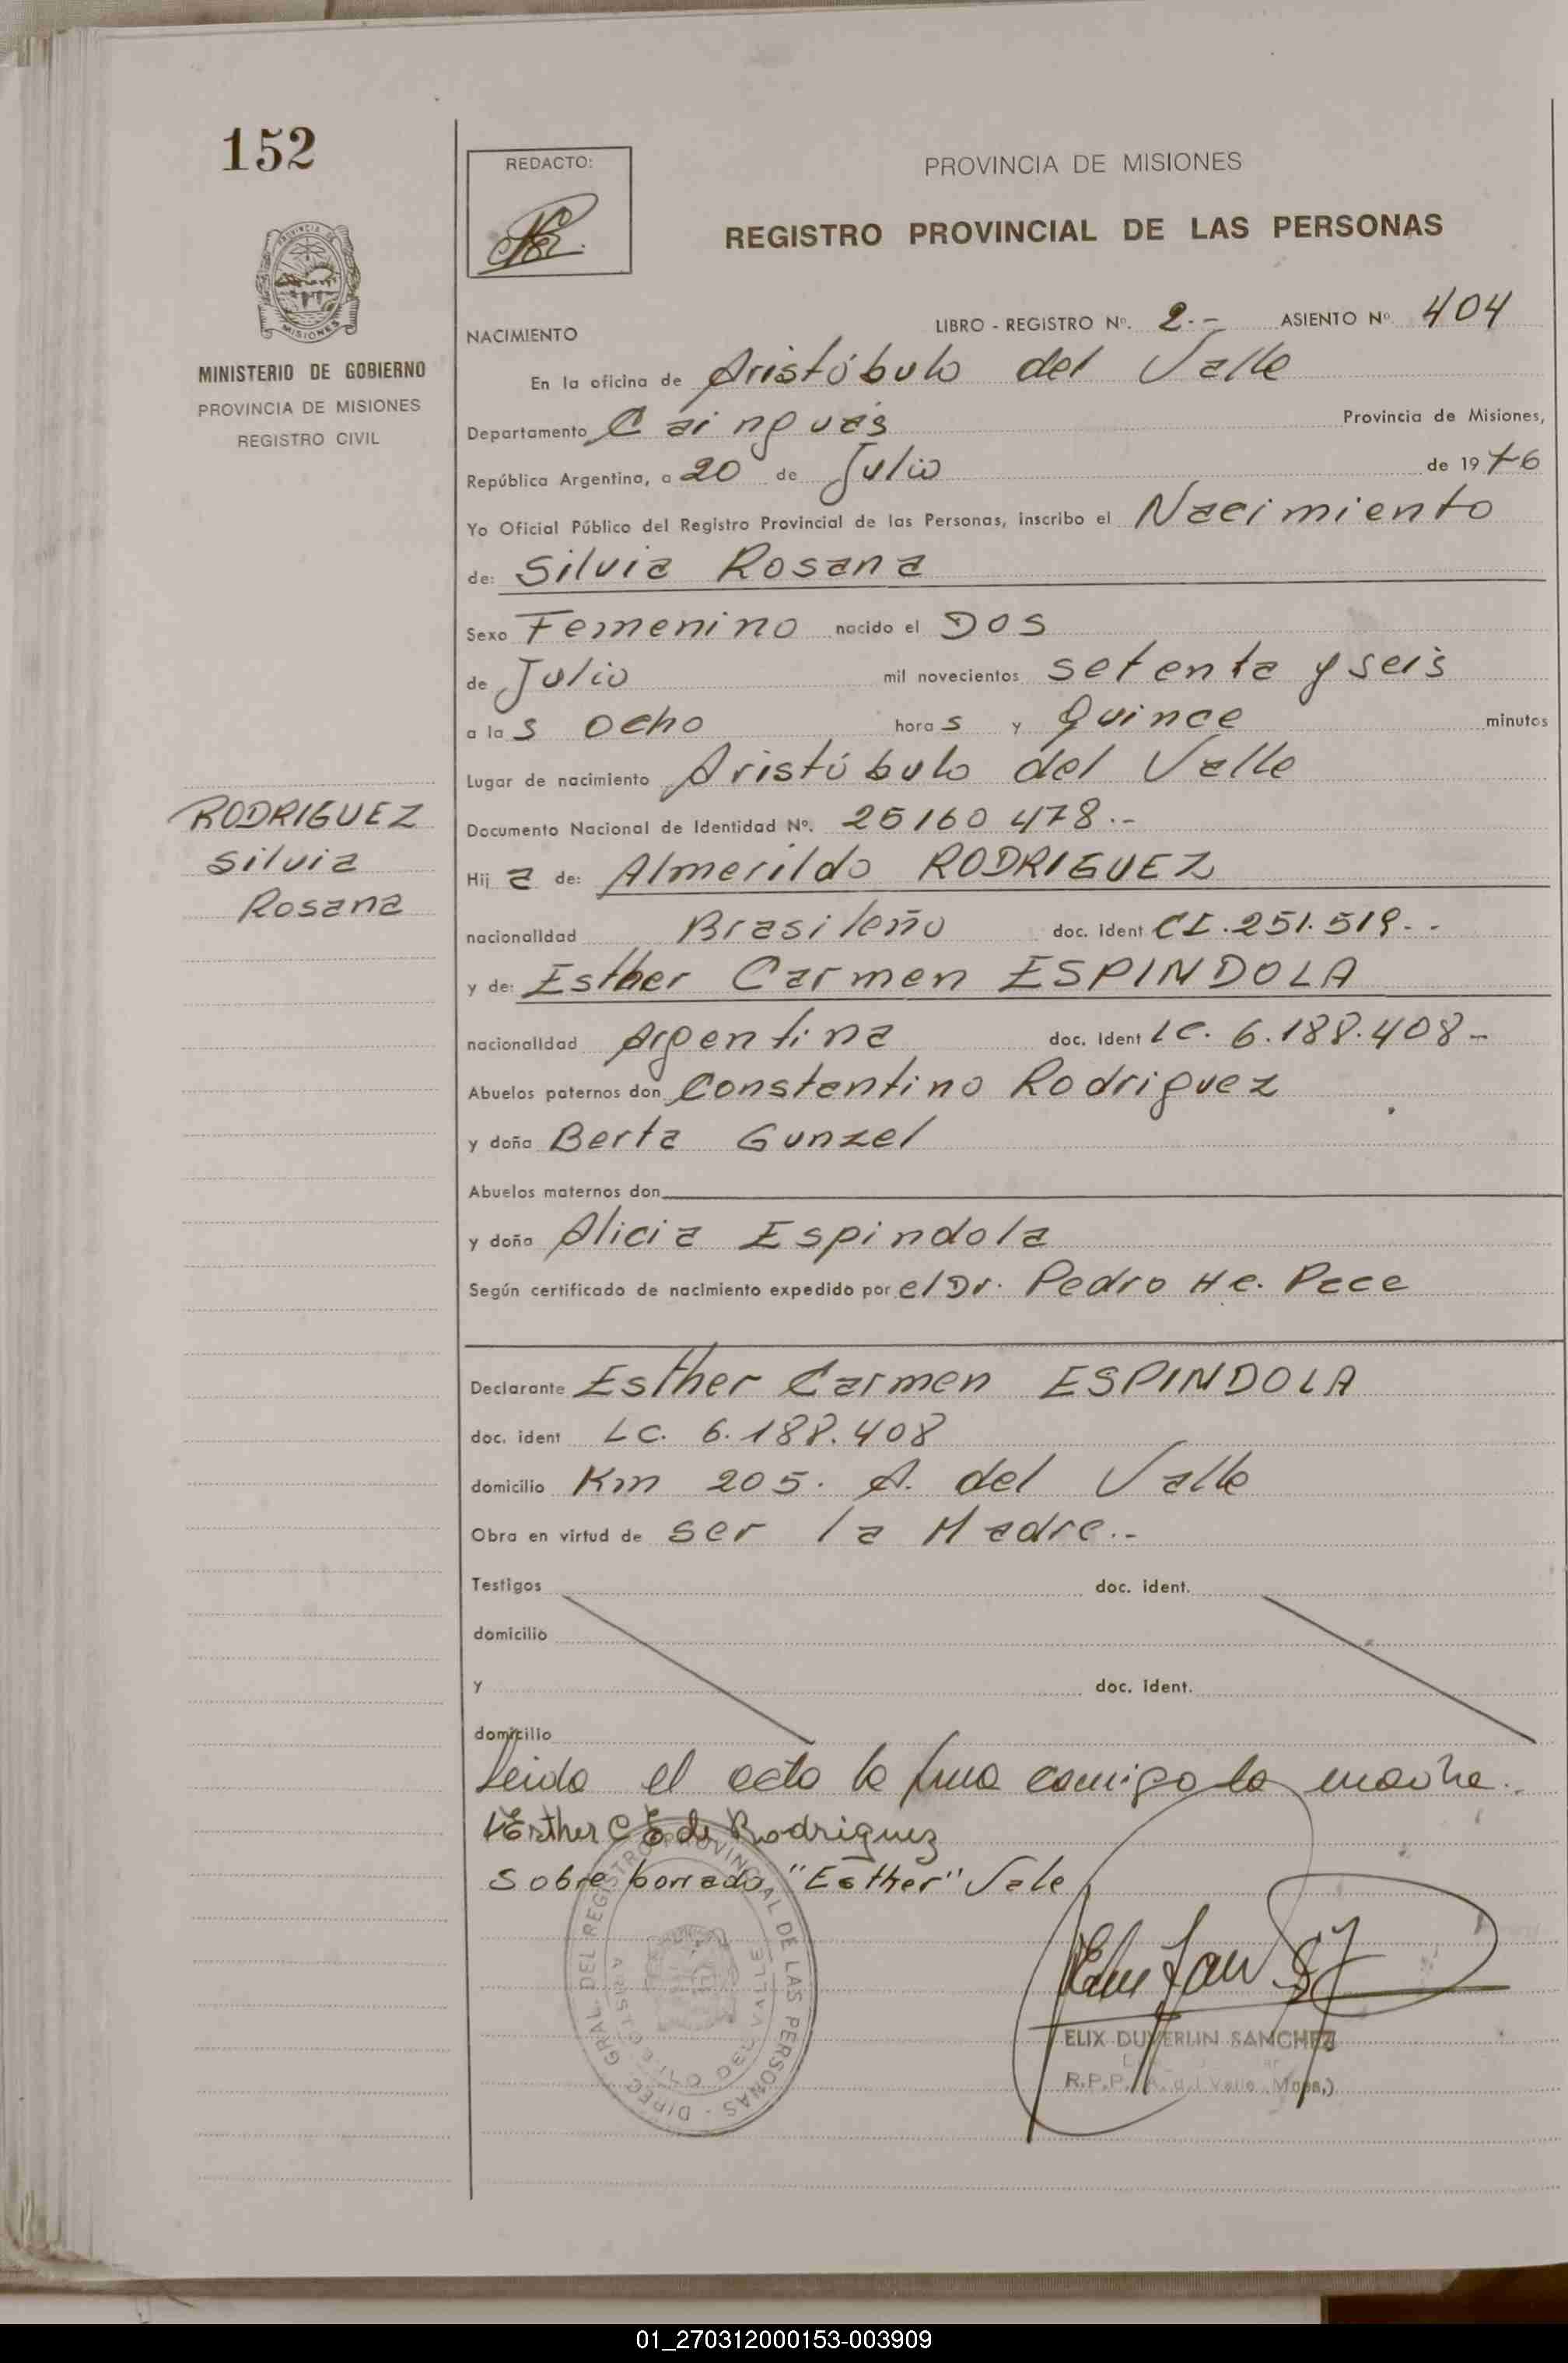 152
MINISTERIO DE GOBIERNO
PROVINCIA DE MISIONES
REGISTRO CIVIL
RODRIGUEZ
Silvia
Rosana
REDACTO:
PROVINCIA DE MISIONES
REGISTRO PROVINCIAL DE LAS PERSONAS
NACIMIENTO LIBRO - REGISTRO Nº. 2.- ASIENTO Nº 404
En la oficina de Aristóbulo del Valle
Departamento Cainguás Provincia de Misiones,
República Argentina, a 20 de Julio de 1976
Yo Oficial Público del Registro Provincial de las Personas, inscribo el Nacimiento
de: Silvia Rosana
Sexo Femenino nacido el DOS
de Julio mil novecientos setenta y seis
a las ocho horas y Quince minutos
Lugar de nacimiento Aristóbulo del Valle
Documento Nacional de Identidad Nº. 25160478.-
Hija de: Almerildo RODRIGUEZ
nacionalidad Brasileño doc. ident CI.251.519.-
y de: Esther Carmen ESPINDOLA
nacionalidad Argentina doc. ident LC. 6.188.408-
Abuelos paternos don Constantino Rodriguez
y doña Berta Gunzel
Abuelos maternos don
y doña Alicia Espindola
Según certificado de nacimiento expedido por el Dr. Pedro He. Pece
Declarante Esther Carmen ESPINDOLA
doc. ident LC. 6.188.408
domicilio Km 205. A. del Valle
Obra en virtud de ser la Madre.-
Testigos doc. ident.
domicilio
y doc. ident.
domicilio
Leida el acta la firma conmigo la madre.
Esther C E de Rodriguez
Sobre borrado "Esther" Vale
DIREC. GRAL. DEL REGISTRO PROVINCIAL DE LAS PERSONAS
VALLE
ELIX DUVERLIN SANCHEZ
R.P.P. A. del Valle Mnes.)
01_270312000153-003909